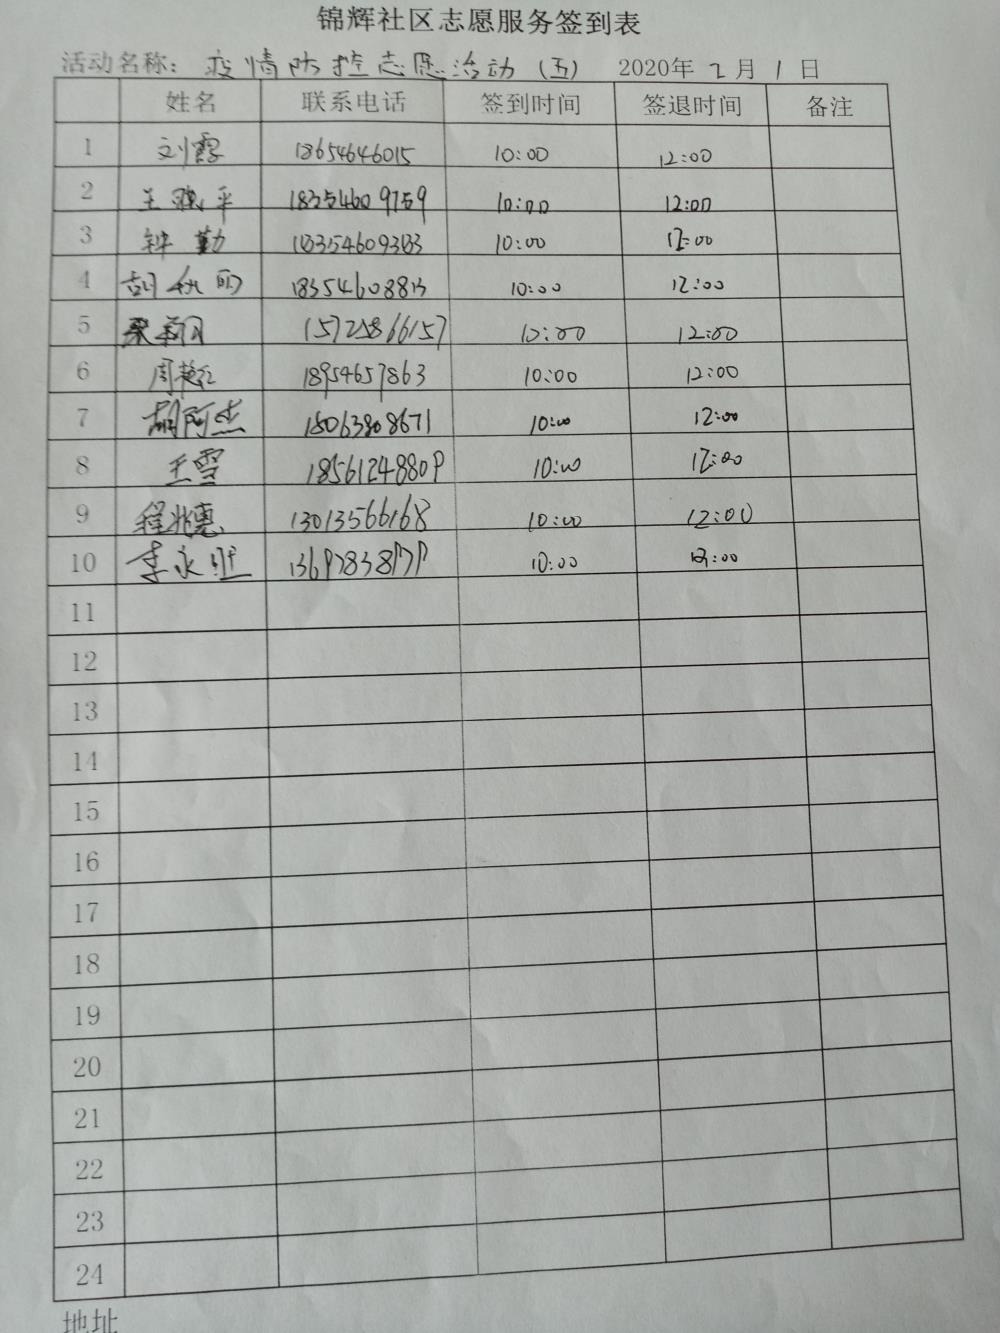 锦辉社区志愿服务签到表
活动名称：疫情防控志愿活动（五） 2020年2月1日
姓名 联系电话 签到时间 签退时间 备注
1 刘霞 18654646015 10:00 12:00
2 王 平 18354609759 10:00 12:00
3 钟勤 18354609303 10:00 12:00
4 胡秋丽 10:00 12:00
5 15725866157 10:00 12:00
6 周艳红 18954657863 10:00 12:00
7 胡阿杰 15063808671 10:00 12:00
8 王雪 18561248809 10:00 12:00
9 程兆惠 13013566168 10:00 12:00
10 李永胜 10:00 12:00
11
12
13
14
15
16
17
18
19
20
21
22
23
24
地址